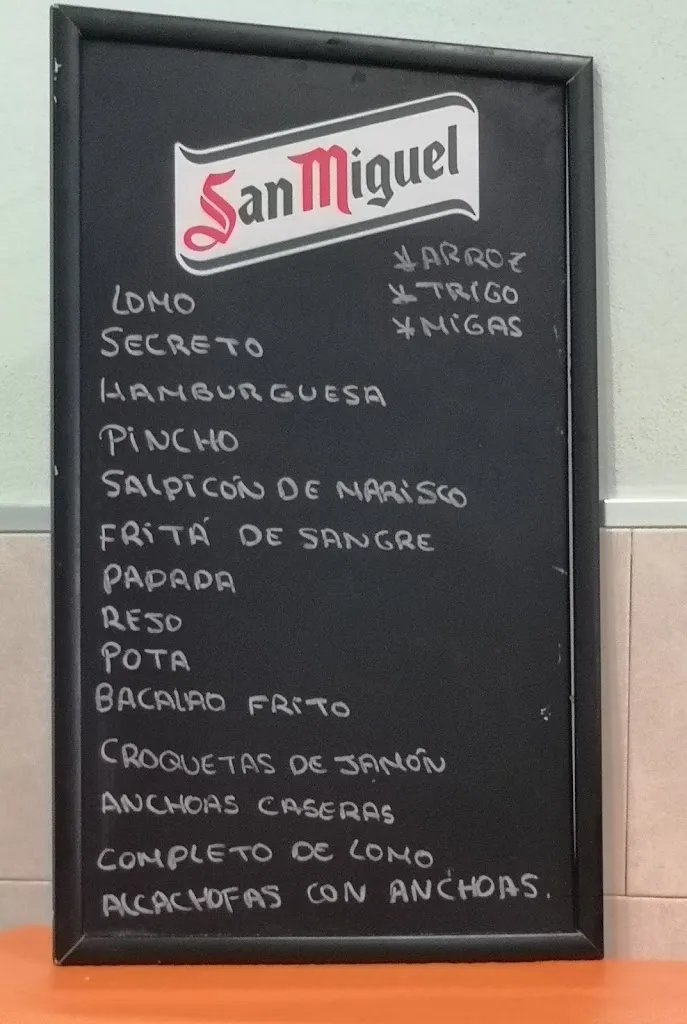 San Miguel
* ARROZ
* TRIGO
* MIGAS
LOMO
SECRETO
HAMBURGUESA
PINCHO
SALPICÓN DE MARISCO
FRITÁ DE SANGRE
PAPADA
REJO
POTA
BACALAO FRITO
CROQUETAS DE JAMÓN
ANCHOAS CASERAS
COMPLETO DE LOMO
ALCACHOFAS CON ANCHOAS.